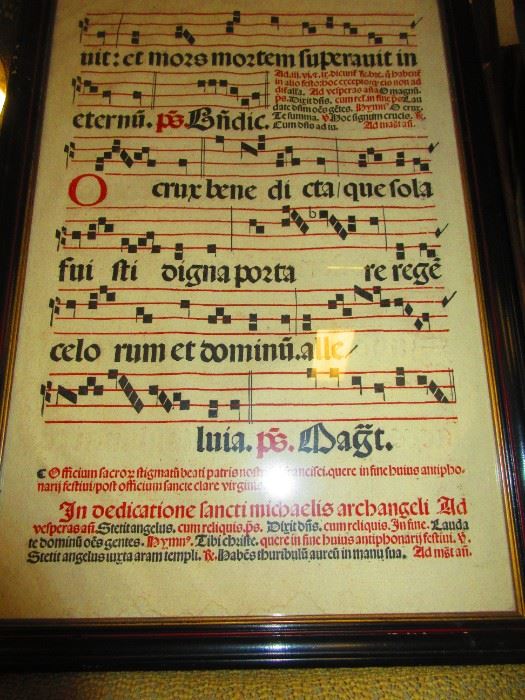 uit: et mors mortem superauit in
eternũ. p̃s. Bñdic.
in alio festo: hoc excepto
Ad vesperas añ. O magnũ.
p̃s. Dixit dñs. cum rel. in fine p̃s. Lau
date dñm oẽs gẽtes. Hymn⁹. O crux.
Te summa. ℣. Hoc signum crucis. ℟.
Cum dñs ad iu. Ad mag̃t añ.
O crux bene di cta/ que sola
fui sti digna porta re regẽ
celo rum et dominũ. alle
luia. p̃s. Mag̃t.
Officium sacroꝝ stigmatũ beati patris nostri Francisci. quere in fine huius antipho-
narij festiui/ post officium sancte clare virginis
In dedicatione sancti michaelis archangeli Ad
vesperas añ. Stetit angelus. cum reliquis. p̃s. Dixit dñs. cum reliquis. In fine. Lauda
te dominũ oẽs gentes. Hymn⁹. Tibi christe. quere in fine huius antiphonarij festiui. ℣.
Stetit angelus iuxta aram templi. ℟. Habẽs thuribulũ aureũ in manu sua. Ad mag̃t añ.